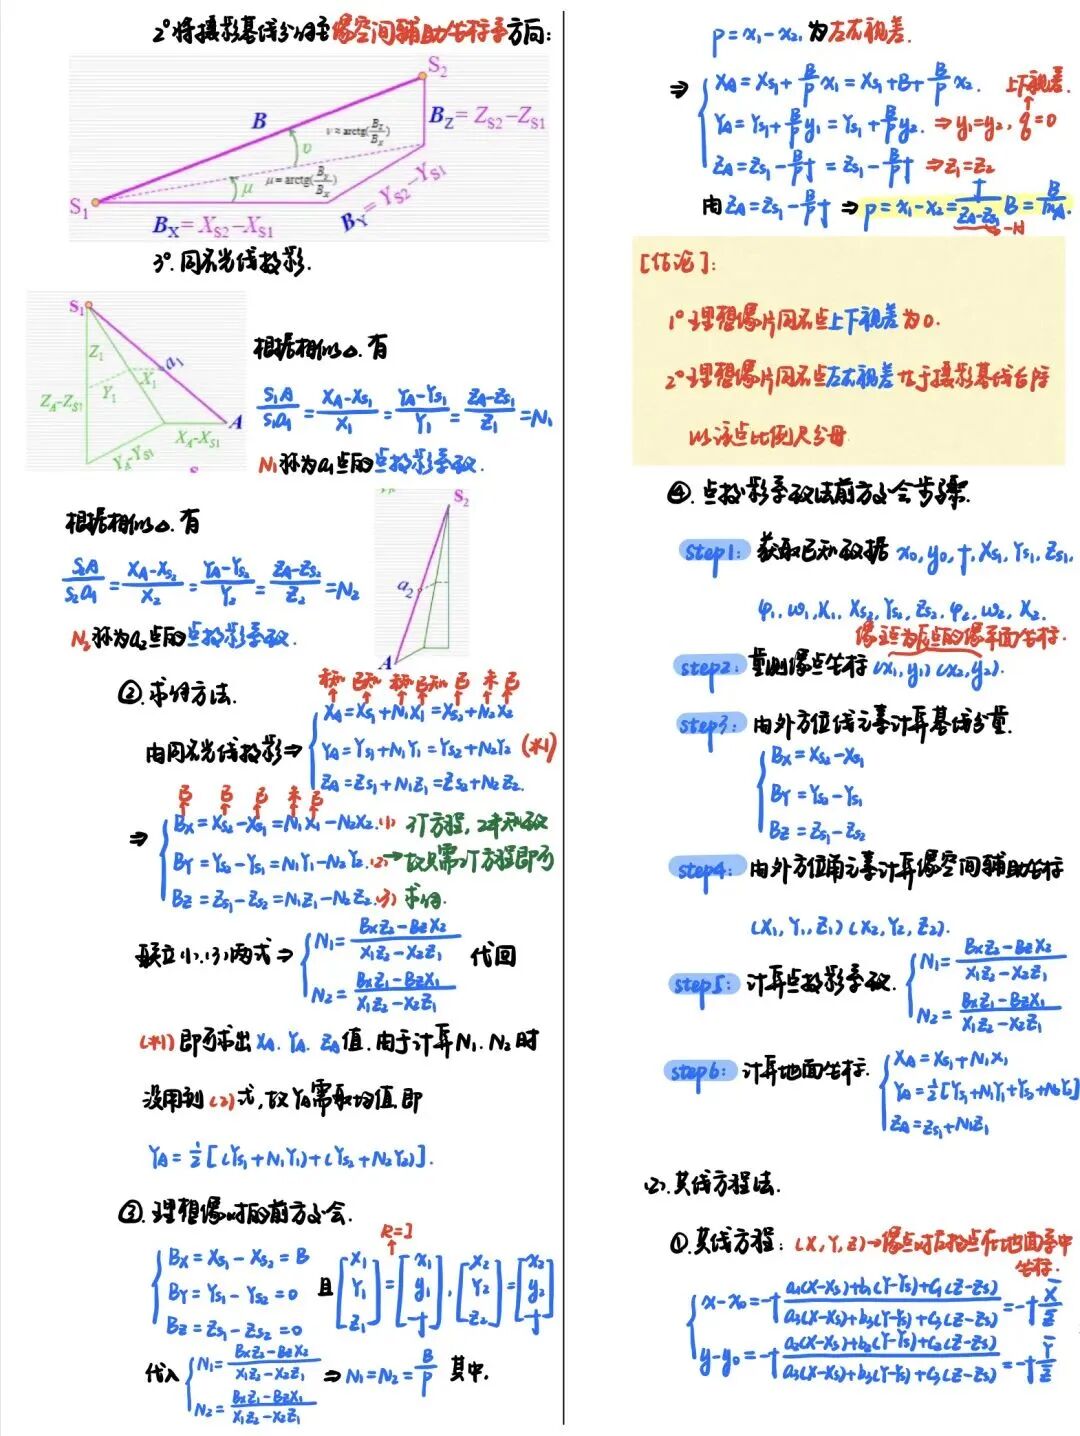 2° 将摄影基线分解至像空间辅助坐标系方向:
S₂
B
B_Z = Z_S2 − Z_S1
ν = arctg(B_Z/B_X)
υ
μ = arctg(B_Y/B_X)
μ
S₁
B_X = X_S2 − X_S1
B_Y = Y_S2 − Y_S1
3°. 同名光线投影.
S₁
Z₁
a₁
X₁
Y₁
Z_A−Z_S1
A
X_A−X_S1
Y_A−Y_S1
S
根据相似△. 有
S₁A/S₁a₁ = (X_A−X_S1)/X₁ = (Y_A−Y_S1)/Y₁ = (Z_A−Z_S1)/Z₁ = N₁
N₁称为a₁点的点投影系数.
S₂
a₂
A
根据相似△. 有
S₂A/S₂a₂ = (X_A−X_S2)/X₂ = (Y_A−Y_S2)/Y₂ = (Z_A−Z_S2)/Z₂ = N₂
N₂称为a₂点的点投影系数.
②. 求解方法.
未知 已知 未知 已知 已 未 已
由同名光线投影⇒ { X_A = X_S1 + N₁X₁ = X_S2 + N₂X₂
Y_A = Y_S1 + N₁Y₁ = Y_S2 + N₂Y₂ (*1)
Z_A = Z_S1 + N₁Z₁ = Z_S2 + N₂Z₂.
已 已 已 未 已
⇒ { B_X = X_S2 − X_S1 = N₁X₁ − N₂X₂. (1) 3个方程, 2未知数
B_Y = Y_S2 − Y_S1 = N₁Y₁ − N₂Y₂. (2) → 故只需2个方程即可
B_Z = Z_S1 − Z_S2 = N₁Z₁ − N₂Z₂. (3) 求解.
联立(1).(3)两式⇒ { N₁ = (B_XZ₂ − B_ZX₂)/(X₁Z₂ − X₂Z₁) 代回
N₂ = (B_XZ₁ − B_ZX₁)/(X₁Z₂ − X₂Z₁)
(*1)即可求出X_A. Y_A. Z_A值. 由于计算N₁. N₂时
没用到(2)式, 故Y_A需取均值. 即
Y_A = ½[(Y_S1 + N₁Y₁) + (Y_S2 + N₂Y₂)].
③. 理想像对的前方交会.
R=I
{ B_X = X_S1 − X_S2 = B
B_Y = Y_S1 − Y_S2 = 0 且 [X₁ Y₁ Z₁] = [x₁ y₁ −f], [X₂ Y₂ Z₂] = [x₂ y₂ −f]
B_Z = Z_S1 − Z_S2 = 0
代入 { N₁ = (B_XZ₂ − B_ZX₂)/(X₁Z₂ − X₂Z₁) ⇒ N₁ = N₂ = B/P 其中.
N₂ = (B_XZ₁ − B_ZX₁)/(X₁Z₂ − X₂Z₁)
p = x₁ − x₂, 为左右视差.
⇒ { X_A = X_S1 + B/P x₁ = X_S1 + B + B/P x₂. 上下视差.
Y_A = Y_S1 + B/P y₁ = Y_S1 + B/P y₂. ⇒ y₁ = y₂, q = 0
Z_A = Z_S1 − B/P f = Z_S1 − B/P f ⇒ Z₁ = Z₂
由 Z_A = Z_S1 − B/P f ⇒ p = x₁ − x₂ = f/(Z_A − Z_S1) B = B/m_A.
−H
[结论]:
1° 理想像片同名点上下视差为0.
2° 理想像片同名点左右视差等于摄影基线台阵
以该点比例尺分母
④. 点投影系数法前方交会步骤.
step1: 获取已知数据 x₀, y₀, f, X_S1, Y_S1, Z_S1,
φ₁, ω₁, κ₁, X_S2, Y_S2, Z_S2, φ₂, ω₂, κ₂.
像主点为原点的像平面坐标.
step2: 量测像点坐标(x₁, y₁) (x₂, y₂).
step3: 由外方位线元素计算基线分量.
{ B_X = X_S2 − X_S1
B_Y = Y_S2 − Y_S1
B_Z = Z_S1 − Z_S2
step4: 由外方位角元素计算像空间辅助坐标
(X₁, Y₁, Z₁) (X₂, Y₂, Z₂).
step5: 计算点投影系数. { N₁ = (B_XZ₂ − B_ZX₂)/(X₁Z₂ − X₂Z₁)
N₂ = (B_XZ₁ − B_ZX₁)/(X₁Z₂ − X₂Z₁)
step6: 计算地面坐标. { X_A = X_S1 + N₁X₁
Y_A = ½[Y_S1 + N₁Y₁ + Y_S2 + N₂Y₂]
Z_A = Z_S1 + N₁Z₁
(2). 共线方程法.
①. 共线方程: (X, Y, Z) → 像点对应物点在地面系中
坐标.
{ x − x₀ = −f (a₁(X−X_S) + b₁(Y−Y_S) + c₁(Z−Z_S))/(a₃(X−X_S) + b₃(Y−Y_S) + c₃(Z−Z_S)) = −f X̄/Z̄
y − y₀ = −f (a₂(X−X_S) + b₂(Y−Y_S) + c₂(Z−Z_S))/(a₃(X−X_S) + b₃(Y−Y_S) + c₃(Z−Z_S)) = −f Ȳ/Z̄